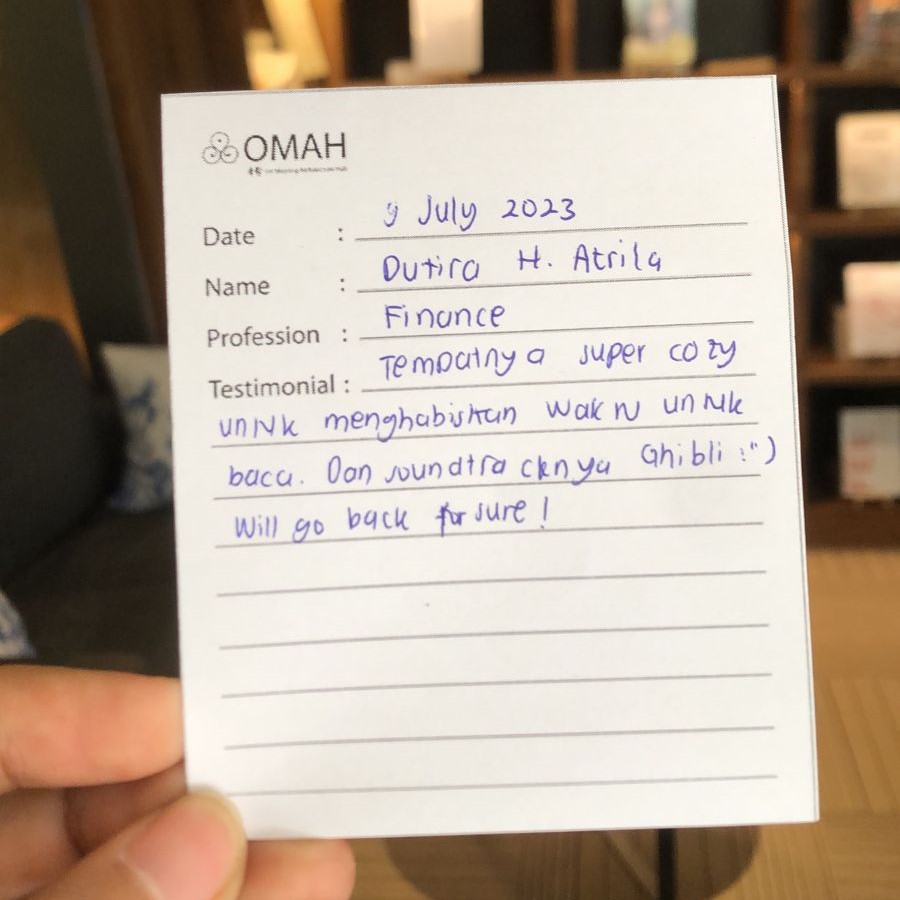 OMAH
Date : 9 July 2023
Name : Dutira H. Atrila
Profession : Finance
Testimonial : Tempatnya super cozy
untuk menghabiskan waktu untuk
baca. Dan soundtracknya Ghibli :")
Will go back for sure!